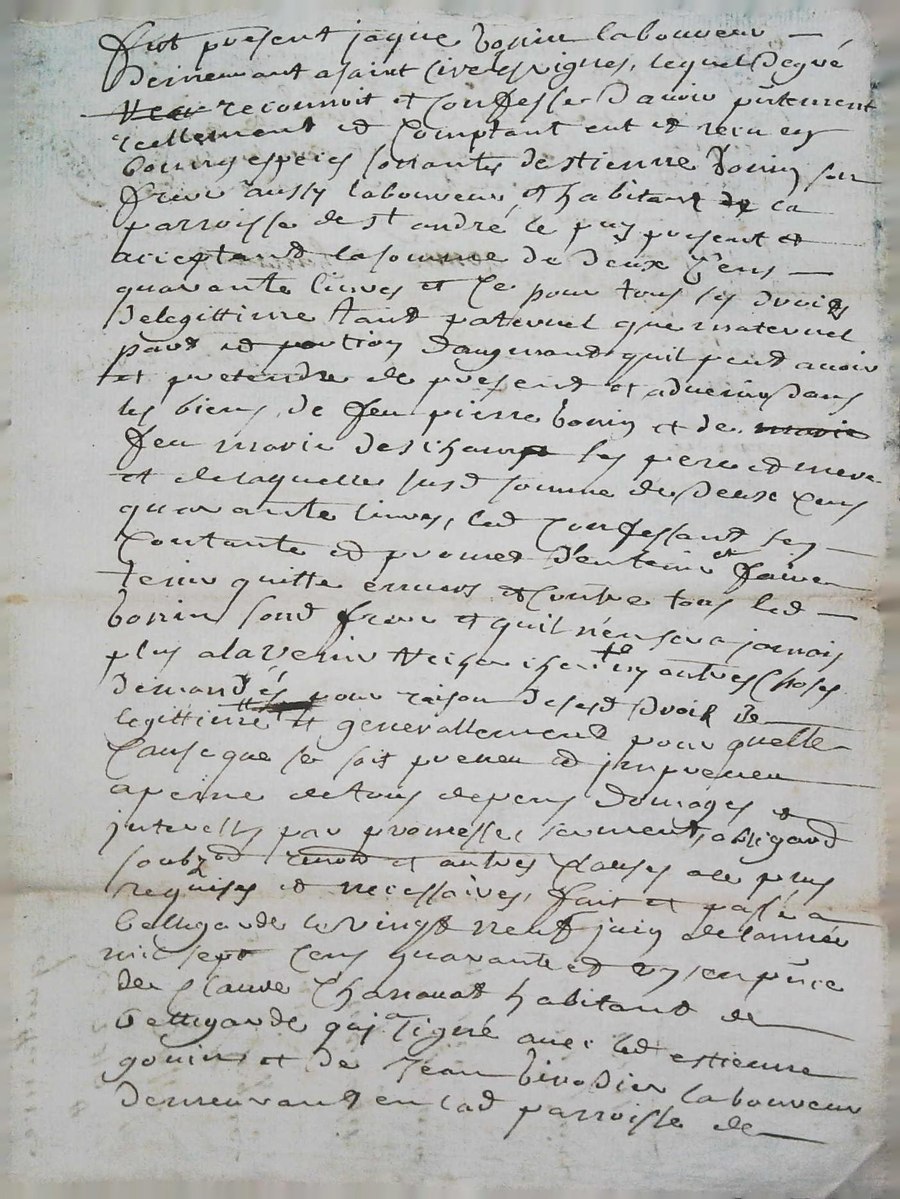 fut present jaque bonin laboureur
demeurant a saint Cire les vignes, lequel de gré
reconnoit et Confesse d'avoir p̃ntement
reellement et Comptant eut et receu en
bonnes espeies sonnantes destienne bonin son
frere aussy laboureur, et habitant de la
parroisse de st andré le puy present et
acceptand la somme de deux Cens
quarante livres et Ce pour tous ses droits
de legittime tant paternel que maternel
part et portion daugmand quil peud avoir
et pretendre de present et advenir dans
les biens de feu pierre bonin et de marie
feu marie deschamp ses pere et mere
et de laquelle susd somme de deux Cens
quarante livres, led Confessand sen
Contante et promet d'en tenir et faire
tenir quitte envers et Contre tous led
bonin sond frere et quil n'en sera jamais
plus a lavenir autres Choses
demandés pour raison desesd droit de
legittime et generallemend pour quelle
Cause que se soit preveu et jmpreveu
a peine de tous depens domages et
interests par promesse, serment, obligaõd
soubz̃od renõod et autres Clauses a ce plus
requises et necessaires, fait et passé a
bellegarde le vingt neuf juin de lannée
mil sept Cens quarante et un en p̃nce
de Claude Chanouat habitant de
bellegarde qui a signé avec led estienne
gonin et de Jean birodier laboureur
demeurant en lad parroisse de